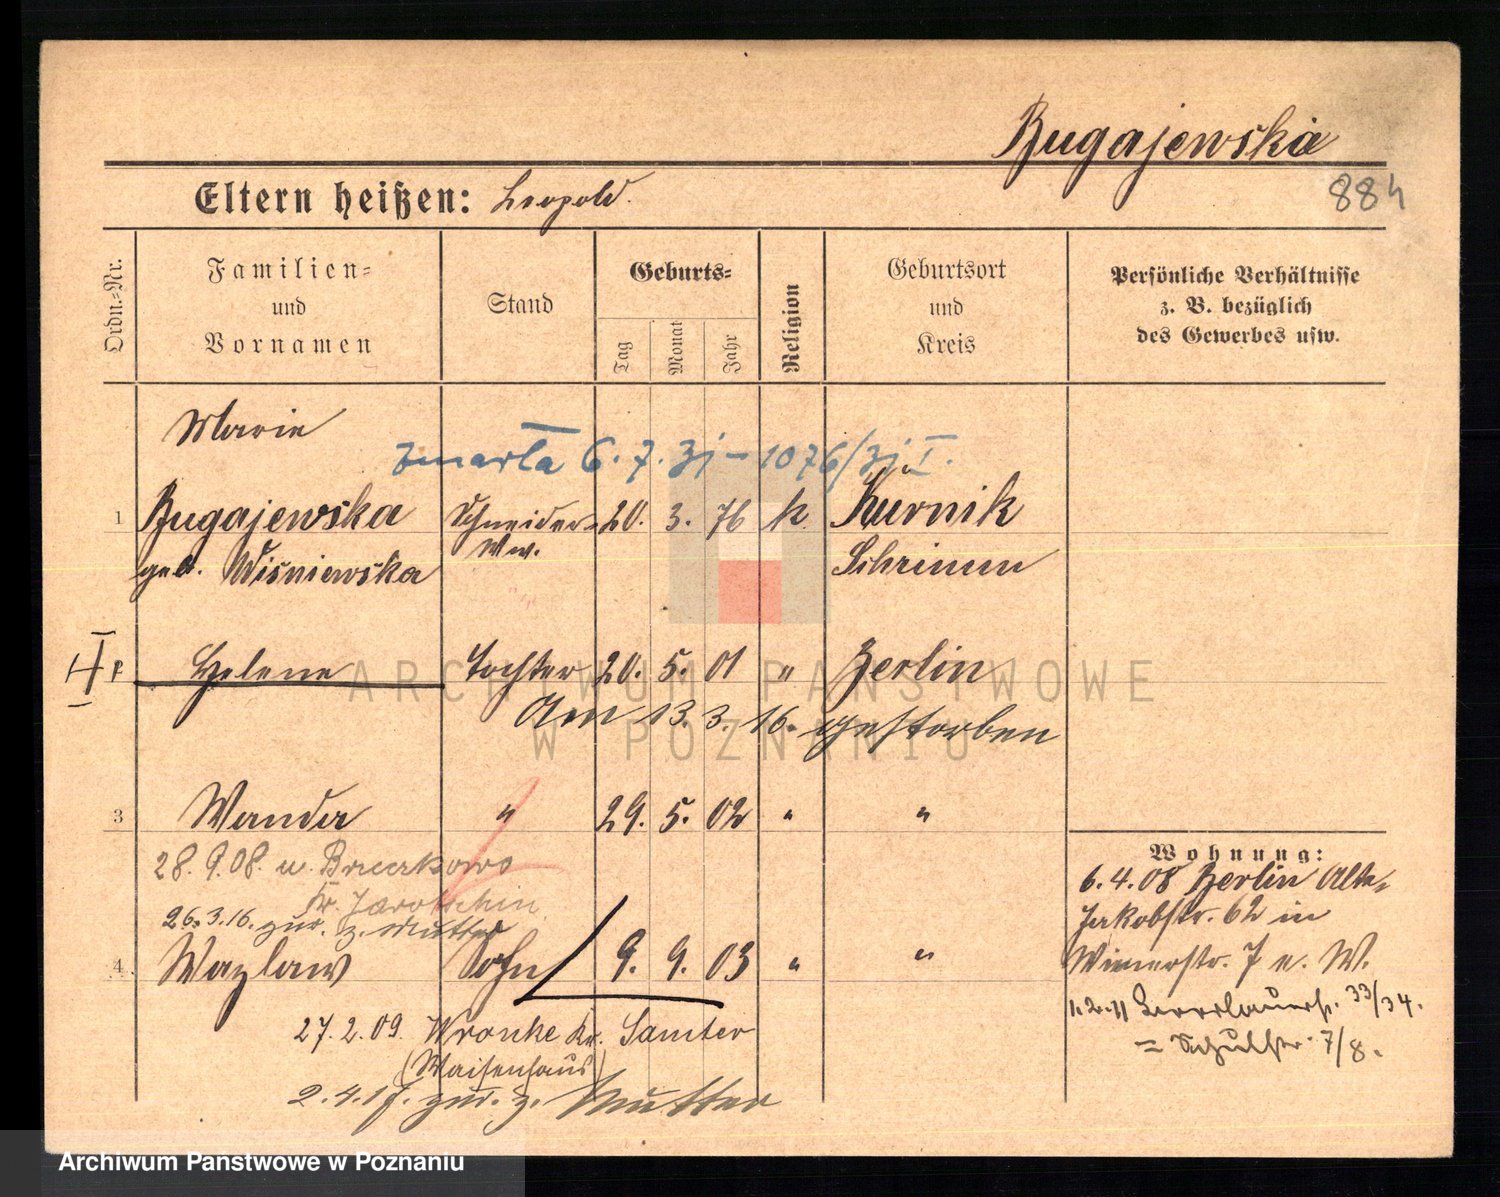 Bugajewska
884
Eltern heißen: Leopold.
Ordn.=Nr.
Familien=
und
Vornamen
Stand
Geburts=
Tag
Monat
Jahr
Religion
Geburtsort
und
Kreis
Persönliche Verhältnisse
z. B. bezüglich
des Gewerbes usw.
Marie
zmarła 6. 7. 31 – 1076/31 I.
1 Bugajewska Schneider= 20. 3. 76 k. Kurnik
Ww.
geb. Wiśniewska Schrimm
Helene Tochter 20. 5. 01 " Berlin
Am 13. 3. 16. gestorben
3 Wanda " 29. 5. 02 " "
28. 9. 08. n. Brzezkowo
Kr. Jarotschin
26. 3. 16. zur. z. Mutter
4 Wazlaw Sohn 9. 9. 03 " "
27. 2. 09. Wronke Kr. Samter
(Waisenhaus)
2. 4. 17. zur. z. Mutter
Wohnung:
6. 4. 08 Berlin Alte
Jakobstr. 62 in
Wienerstr. 7 n. W.
1. 2. 11 33/34.
= Schulstr. 7/8.
ARCHIWUM PAŃSTWOWE
W POZNANIU
Archiwum Państwowe w Poznaniu